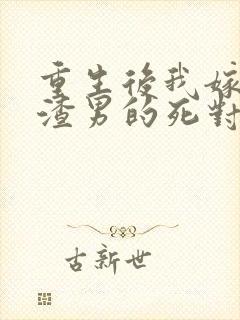 重生後我嫁
渣男的死對
古新世